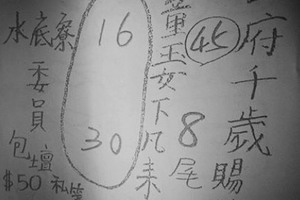 府千歲賜
45
8尾
童玉女下凡來
16
30
水底寮
委員
包壇
$50 私